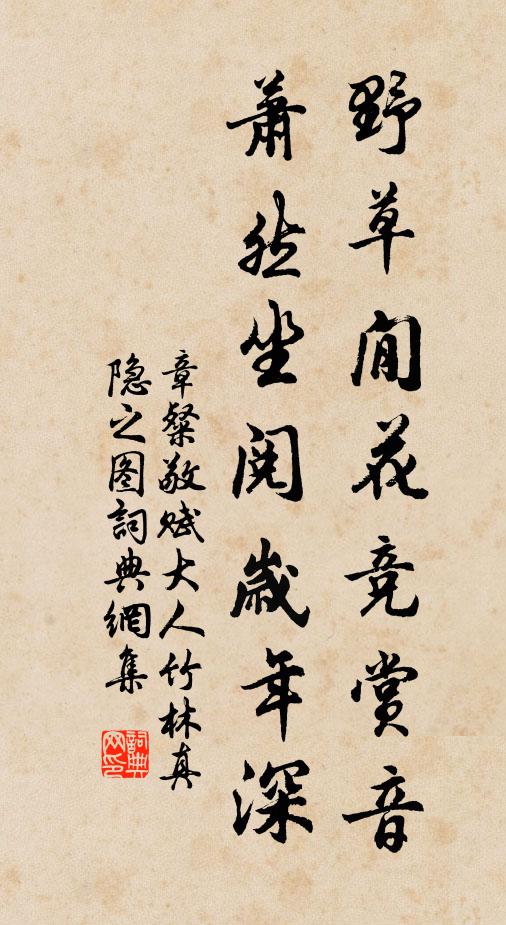 野草閒花竞賞音
蕭然坐閱歲年深
章粲敬賦大人竹林真
隐之图詞典網集
詞典
网印